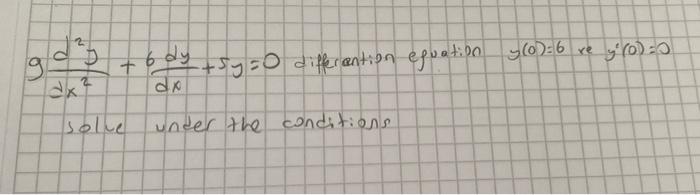 9 d²y/dx² + 6 dy/dx + 5y = 0 differantion equation y(0)=6 ve y'(0)=0
solve under the conditions